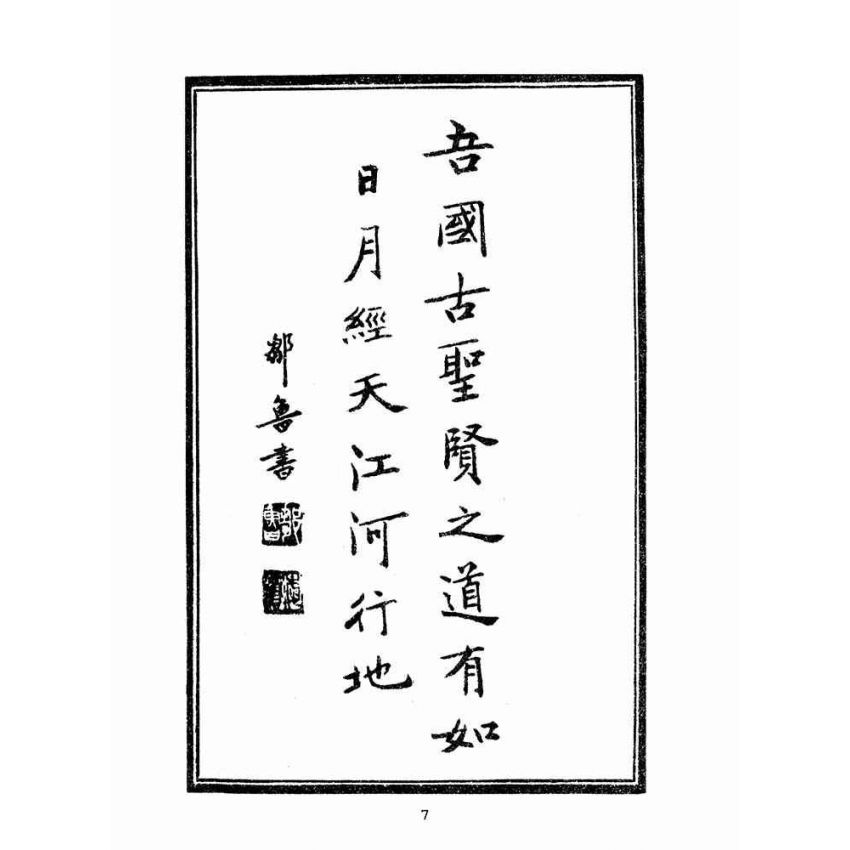 吾國古聖賢之道有如
日月經天江河行地
鄒魯書
7